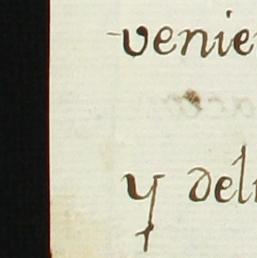 venie
y del